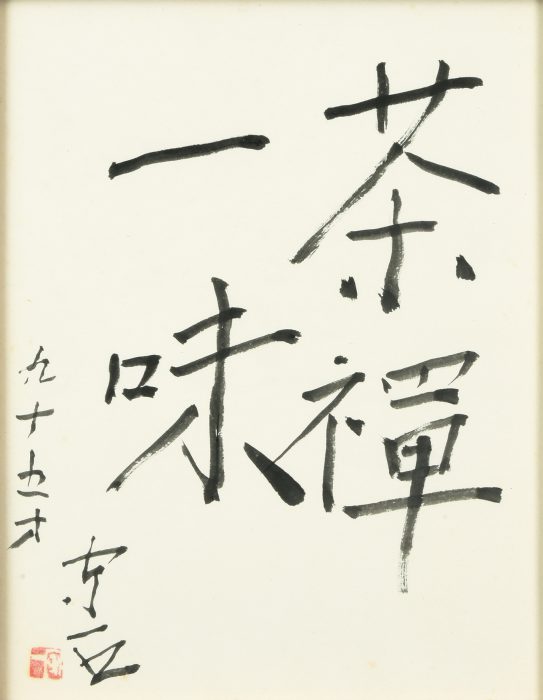 茶禪
一味
九十五才